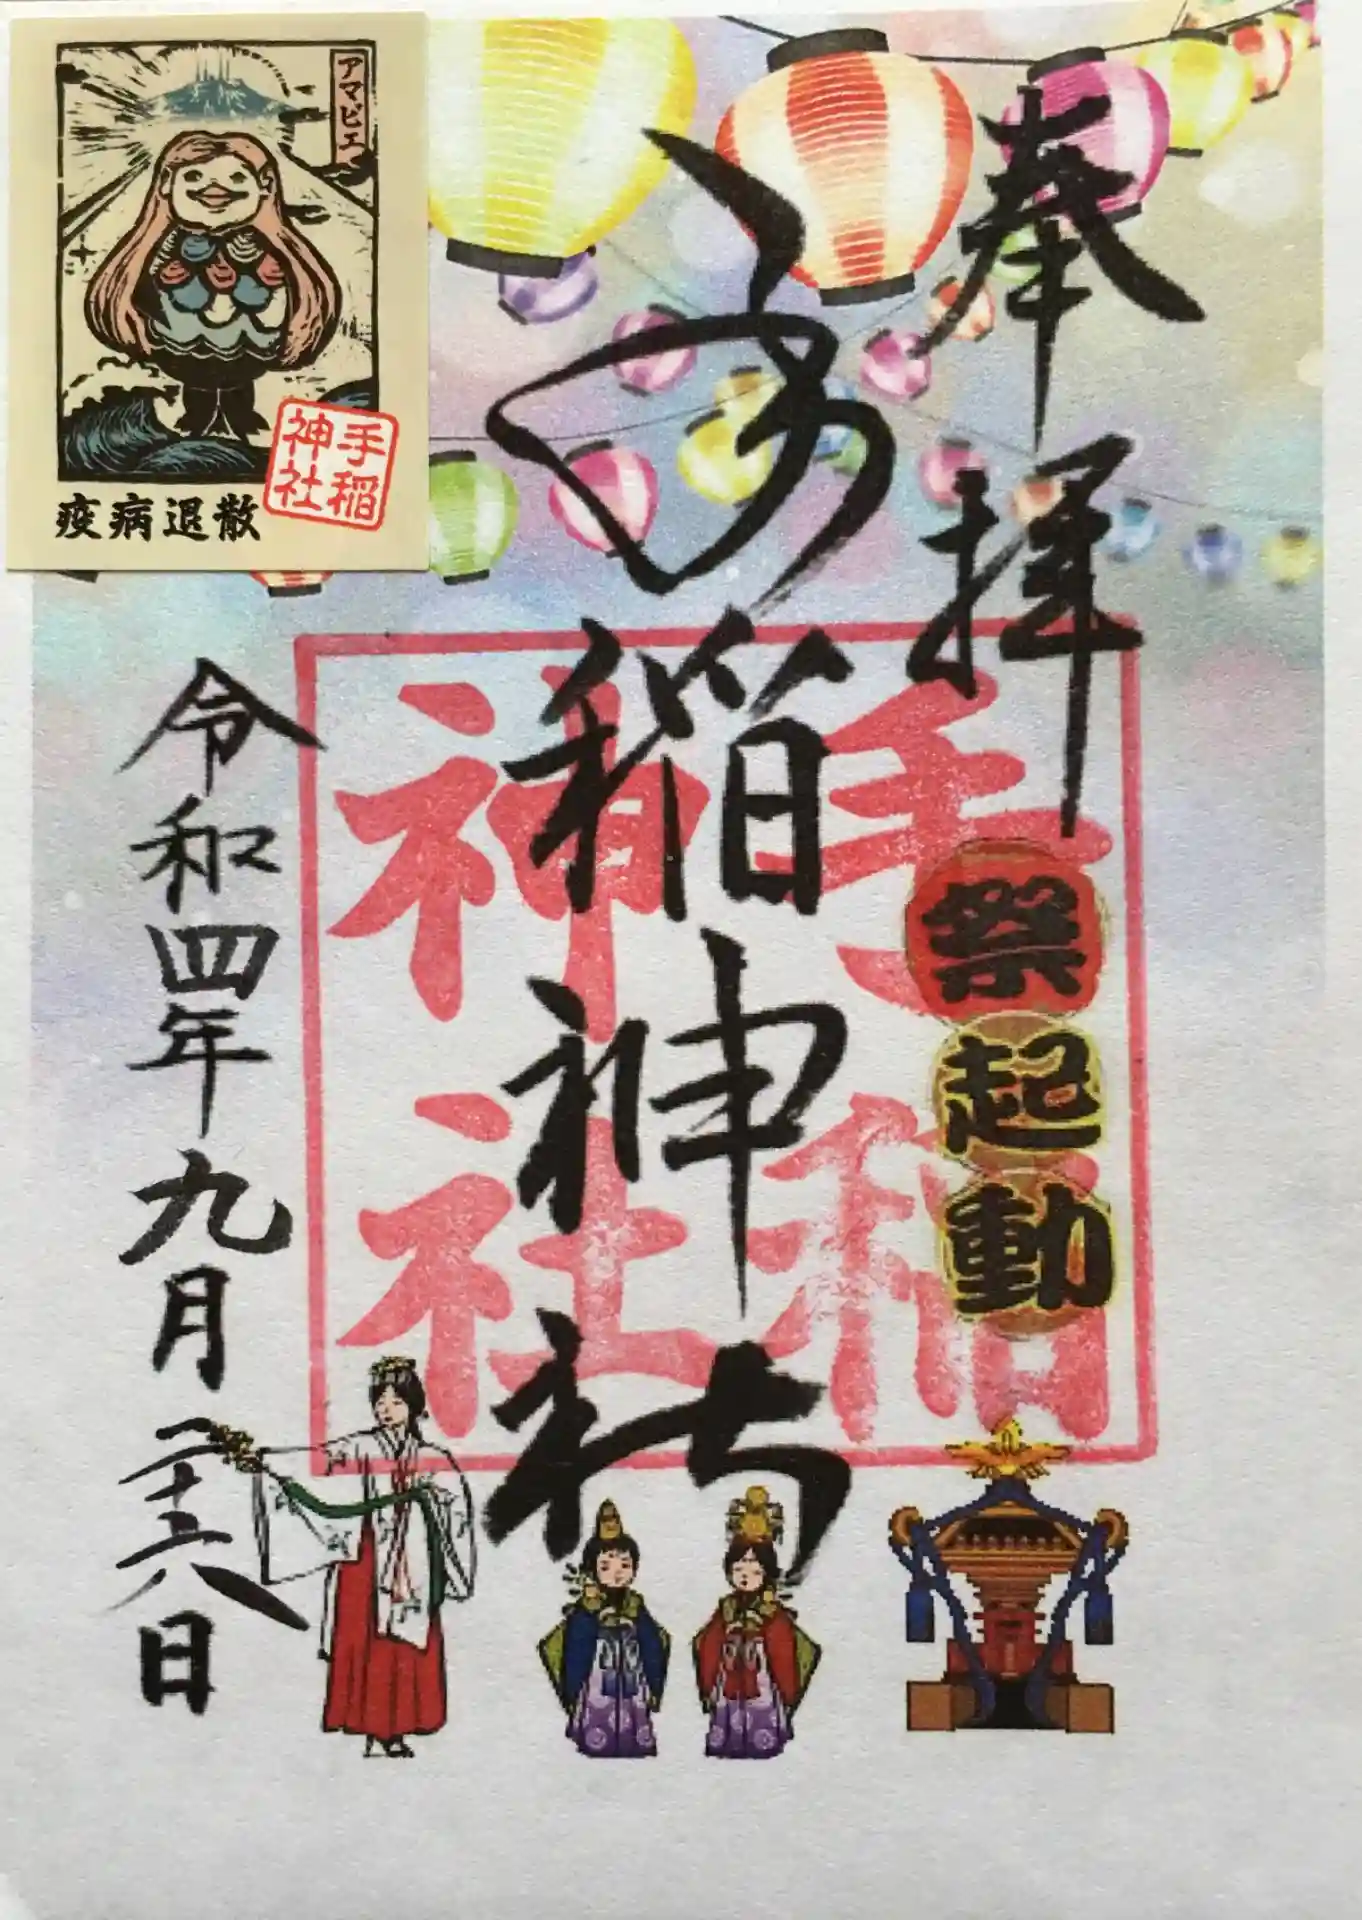 奉拝
祭起動
手稲神社
手稲神社
令和四年九月二十六日
アマビエ
疫病退散
手稲神社